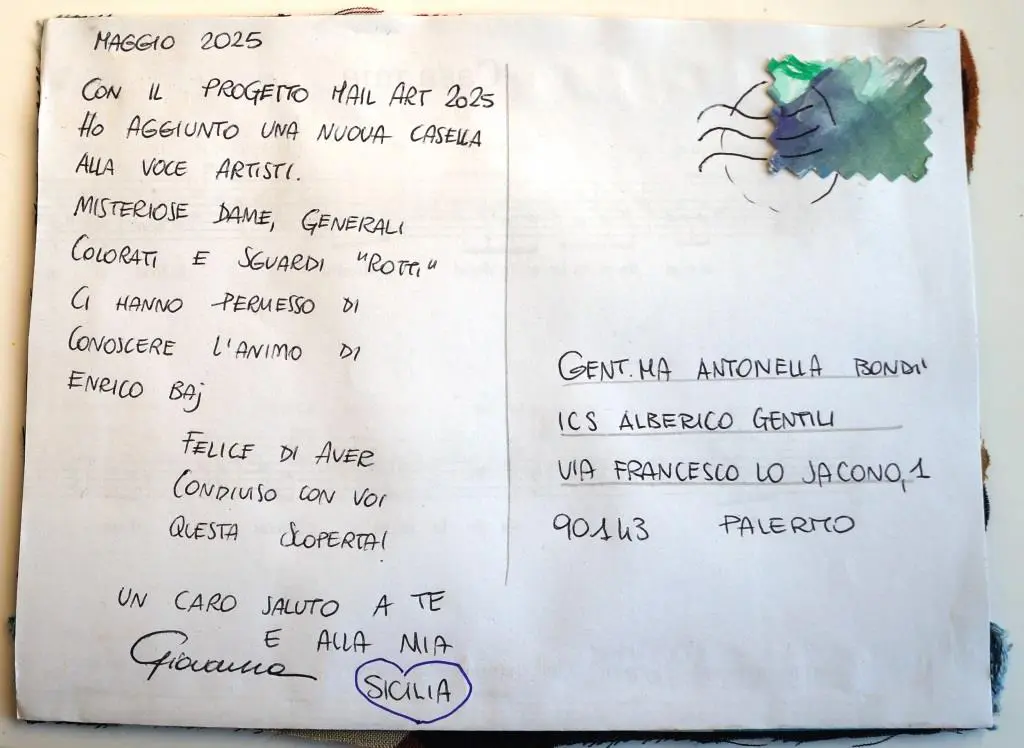 MAGGIO 2025
CON IL PROGETTO MAIL ART 2025
HO AGGIUNTO UNA NUOVA CASELLA
ALLA VOCE ARTISTI.
MISTERIOSE DAME, GENERALI
COLORATI E SGUARDI "ROTTI"
CI HANNO PERMESSO DI
CONOSCERE L'ANIMO DI
ENRICO BAJ
FELICE DI AVER
CONDIVISO CON VOI
QUESTA SCOPERTA!
UN CARO SALUTO A TE
E ALLA MIA
SICILIA
Giovanna
GENT.MA ANTONELLA BONDI'
ICS ALBERICO GENTILI
VIA FRANCESCO LO JACONO, 1
90143 PALERMO